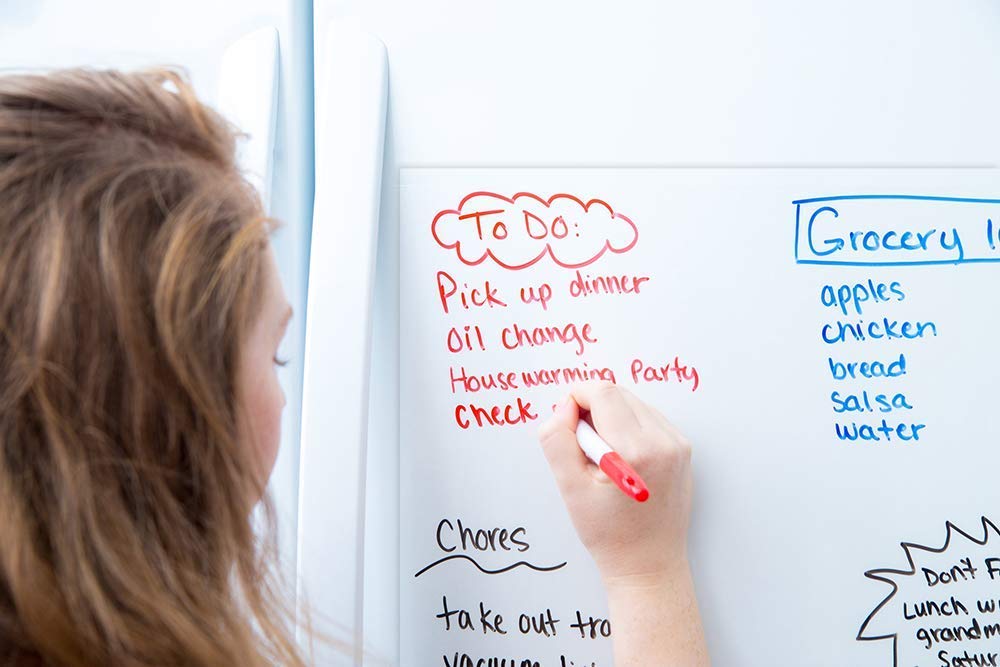 To Do:
Pick up dinner
Oil change
Housewarming Party
check
Grocery
apples
chicken
bread
salsa
water
Chores
take out
vacuum
Don't
Lunch